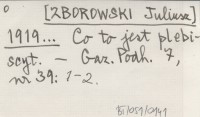 [ZBOROWSKI Juliusz]
1919... Co to jest plebi-
scyt. - Gaz. Podh. 7,
nr 39: 1-2.